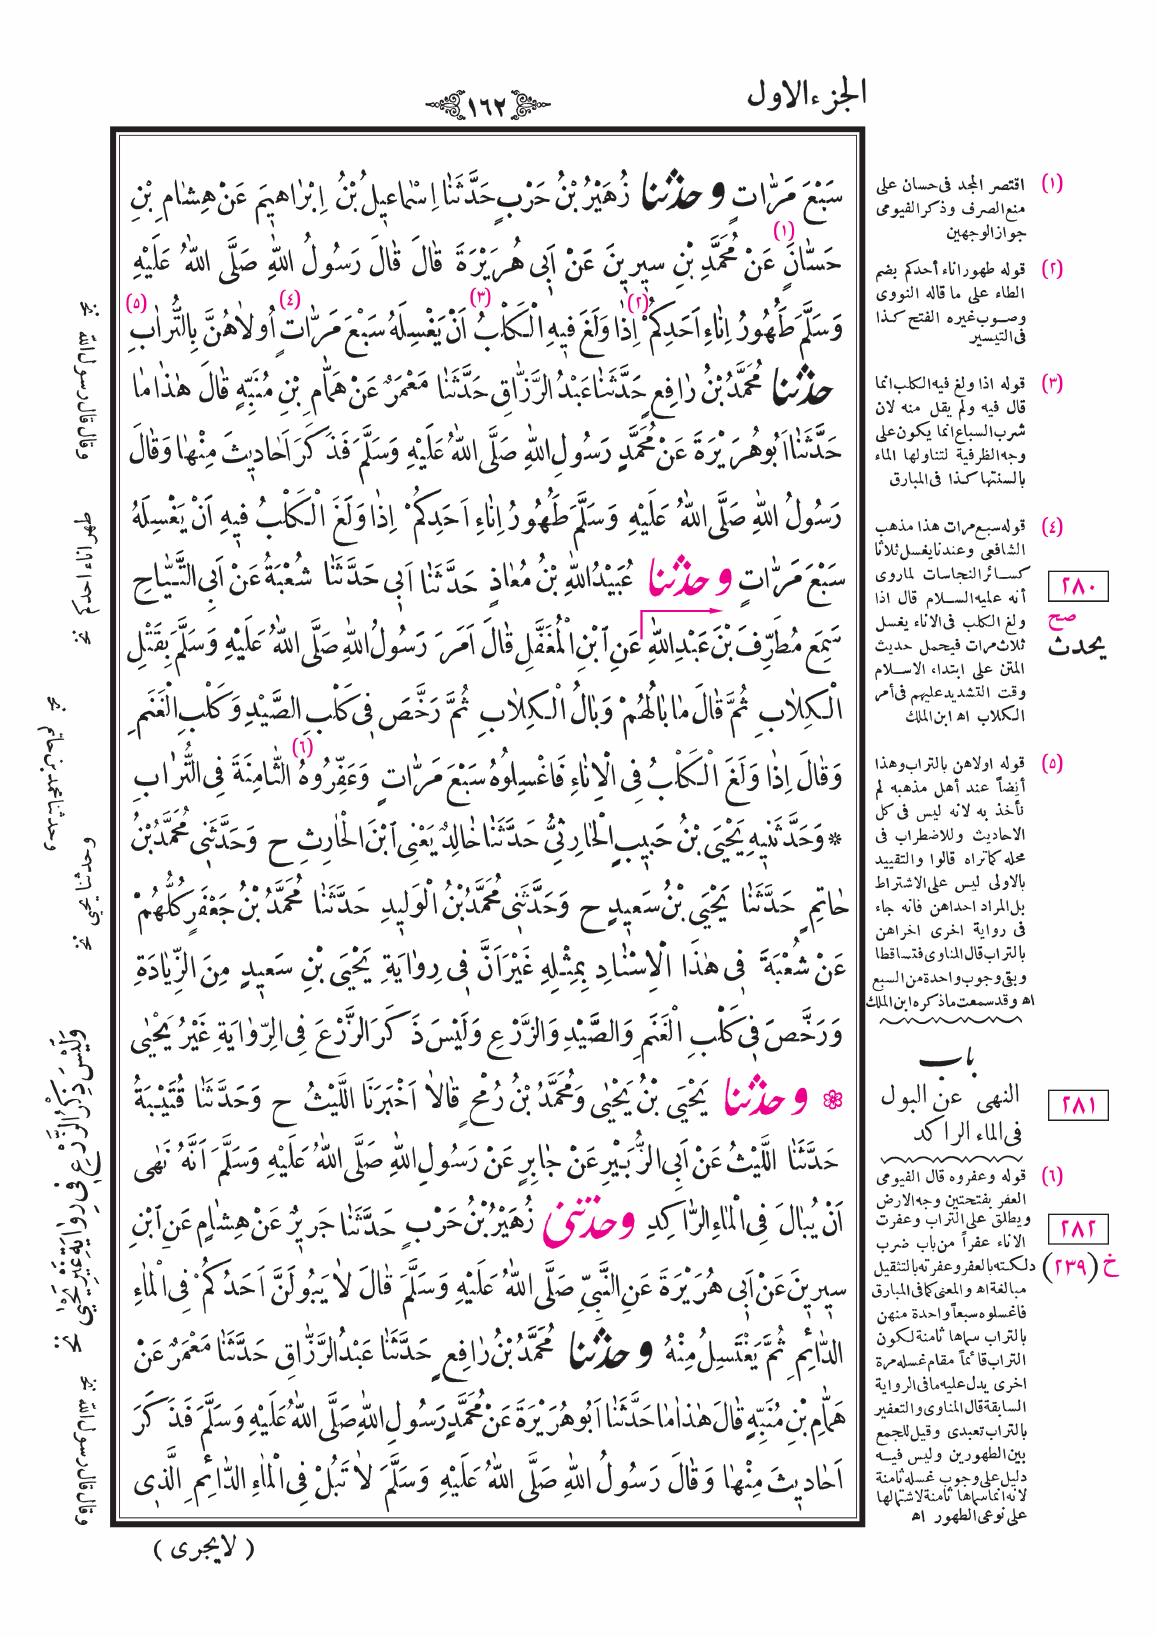 الجزء الاول
١٦٢
سَبْعَ مَرَّاتٍ وحدثنا زُهَيْرُ بْنُ حَرْبٍ حَدَّثَنَا اِسْمَاعِيلُ بْنُ اِبْرَاهِيمَ عَنْ هِشَامِ بْنِ
حَسَّانٍ (١) عَنْ مُحَمَّدِ بْنِ سِيرِينَ عَنْ اَبِي هُرَيْرَةَ قَالَ قَالَ رَسُولُ اللّٰهِ صَلَّى اللّٰهُ عَلَيْهِ
وَسَلَّمَ طَهُورُ اِنَاءِ اَحَدِكُمْ (٢) اِذَا وَلَغَ فِيهِ الْكَلْبُ (٣) اَنْ يَغْسِلَهُ سَبْعَ مَرَّاتٍ (٤) اُولَاهُنَّ بِالتُّرَابِ (٥)
حدثنا مُحَمَّدُ بْنُ رَافِعٍ حَدَّثَنَا عَبْدُ الرَّزَّاقِ حَدَّثَنَا مَعْمَرٌ عَنْ هَمَّامِ بْنِ مُنَبِّهٍ قَالَ هٰذَا مَا
حَدَّثَنَا اَبُو هُرَيْرَةَ عَنْ مُحَمَّدٍ رَسُولِ اللّٰهِ صَلَّى اللّٰهُ عَلَيْهِ وَسَلَّمَ فَذَكَرَ اَحَادِيثَ مِنْهَا وَقَالَ
رَسُولُ اللّٰهِ صَلَّى اللّٰهُ عَلَيْهِ وَسَلَّمَ طَهُورُ اِنَاءِ اَحَدِكُمْ اِذَا وَلَغَ الْكَلْبُ فِيهِ اَنْ يَغْسِلَهُ
سَبْعَ مَرَّاتٍ وحدثنا عُبَيْدُ اللّٰهِ بْنُ مُعَاذٍ حَدَّثَنَا اَبِي حَدَّثَنَا شُعْبَةُ عَنْ اَبِي التَّيَّاحِ
سَمِعَ مُطَرِّفَ بْنَ عَبْدِ اللّٰهِ عَنِ ابْنِ الْمُغَفَّلِ قَالَ اَمَرَ رَسُولُ اللّٰهِ صَلَّى اللّٰهُ عَلَيْهِ وَسَلَّمَ بِقَتْلِ
الْكِلَابِ ثُمَّ قَالَ مَا بَالُهُمْ وَبَالُ الْكِلَابِ ثُمَّ رَخَّصَ فِي كَلْبِ الصَّيْدِ وَكَلْبِ الْغَنَمِ
وَقَالَ اِذَا وَلَغَ الْكَلْبُ فِي الْاِنَاءِ فَاغْسِلُوهُ سَبْعَ مَرَّاتٍ وَعَفِّرُوهُ (٦) الثَّامِنَةَ فِي التُّرَابِ
* وَحَدَّثَنِيهِ يَحْيَى بْنُ حَبِيبٍ الْحَارِثِيُّ حَدَّثَنَا خَالِدٌ يَعْنِي ابْنَ الْحَارِثِ ح وَحَدَّثَنِي مُحَمَّدُ بْنُ
حَاتِمٍ حَدَّثَنَا يَحْيَى بْنُ سَعِيدٍ ح وَحَدَّثَنِي مُحَمَّدُ بْنُ الْوَلِيدِ حَدَّثَنَا مُحَمَّدُ بْنُ جَعْفَرٍ كُلُّهُمْ
عَنْ شُعْبَةَ فِي هٰذَا الْاِسْنَادِ بِمِثْلِهِ غَيْرَ اَنَّ فِي رِوَايَةِ يَحْيَى بْنِ سَعِيدٍ مِنَ الزِّيَادَةِ
وَرَخَّصَ فِي كَلْبِ الْغَنَمِ وَالصَّيْدِ وَالزَّرْعِ وَلَيْسَ ذَكَرَ الزَّرْعَ فِي الرِّوَايَةِ غَيْرُ يَحْيٰى
* وحدثنا يَحْيَى بْنُ يَحْيٰى وَمُحَمَّدُ بْنُ رُمْحٍ قَالَا اَخْبَرَنَا اللَّيْثُ ح وَحَدَّثَنَا قُتَيْبَةُ
حَدَّثَنَا اللَّيْثُ عَنْ اَبِي الزُّبَيْرِ عَنْ جَابِرٍ عَنْ رَسُولِ اللّٰهِ صَلَّى اللّٰهُ عَلَيْهِ وَسَلَّمَ اَنَّهُ نَهٰى
اَنْ يُبَالَ فِي الْمَاءِ الرَّاكِدِ وحدثنى زُهَيْرُ بْنُ حَرْبٍ حَدَّثَنَا جَرِيرٌ عَنْ هِشَامٍ عَنِ ابْنِ
سِيرِينَ عَنْ اَبِي هُرَيْرَةَ عَنِ النَّبِيِّ صَلَّى اللّٰهُ عَلَيْهِ وَسَلَّمَ قَالَ لَا يَبُولَنَّ اَحَدُكُمْ فِي الْمَاءِ
الدَّائِمِ ثُمَّ يَغْتَسِلُ مِنْهُ وحدثنا مُحَمَّدُ بْنُ رَافِعٍ حَدَّثَنَا عَبْدُ الرَّزَّاقِ حَدَّثَنَا مَعْمَرٌ عَنْ
هَمَّامِ بْنِ مُنَبِّهٍ قَالَ هٰذَا مَا حَدَّثَنَا اَبُو هُرَيْرَةَ عَنْ مُحَمَّدٍ رَسُولِ اللّٰهِ صَلَّى اللّٰهُ عَلَيْهِ وَسَلَّمَ فَذَكَرَ
اَحَادِيثَ مِنْهَا وَقَالَ رَسُولُ اللّٰهِ صَلَّى اللّٰهُ عَلَيْهِ وَسَلَّمَ لَا تَبُلْ فِي الْمَاءِ الدَّائِمِ الَّذِي
( لايجرى )
(١) اقتصر المجد فى حسان على
منع الصرف وذكر الفيومى
جواز الوجهين
(٢) قوله طهور اناء أحدكم بضم
الطاء على ما قاله النووى
وصوب غيره الفتح كذا
فى التيسير
(٣) قوله اذا ولغ فيه الكلب انما
قال فيه ولم يقل منه لان
شرب السباع انما يكون على
وجه الظرفية لتناولها الماء
بالسنتها كذا فى المبارق
(٤) قوله سبع مرات هذا مذهب
الشافعى وعندنا يغسل ثلاثا
كسائر النجاسات لما روى
أنه عليه السلام قال اذا
ولغ الكلب فى الاناء يغسل
ثلاث مرات فيحمل حديث
المتن على ابتداء الاسلام
وقت التشديد عليهم فى أمر
الكلاب اه ابن الملك
(٥) قوله اولاهن بالتراب وهذا
أيضاً عند أهل مذهبه لم
نأخذ به لانه ليس فى كل
الاحاديث وللاضطراب فى
محله كما تراه قالوا والتقييد
بالاولى ليس على الاشتراط
بل المراد احداهن فانه جاء
فى رواية اخرى اخراهن
بالتراب قال المناوى فتساقطا
وبقى وجوب واحدة من السبع
اه وقد سمعت ما ذكره ابن الملك
باب
النهى عن البول
فى الماء الراكد
(٦) قوله وعفروه قال الفيومى
العفر بفتحتين وجه الارض
ويطلق على التراب وعفرت
الاناء عفراً من باب ضرب
دلكته بالعفر وعفرته بالتثقيل
مبالغة اه والمعنى كما فى المبارق
فاغسلوه سبعاً واحدة منهن
بالتراب سماها ثامنة لكون
التراب قائماً مقام غسله مرة
اخرى يدل عليه ما فى الرواية
السابقة قال المناوى والتعفير
بالتراب تعبدى وقيل للجمع
بين الطهورين وليس فيه
دليل على وجوب غسله ثامنة
لانه انما سماها ثامنة لاشتمالها
على نوعى الطهور اه
٢٨٠
صح
يحدث
٢٨١
٢٨٢
خ (٢٣٩)
وقال قال رسول الله نخ
طهر اناء احدكم نخ
وحدثنا محمد بن حاتم نخ
وحدثنا يحيى نخ
وَلَيْسَ ذِكْرُ الزَّرْعِ فِي رِوَايَةِ غَيْرِ يَحْيٰى نخ
وقال قال رسول الله نخ